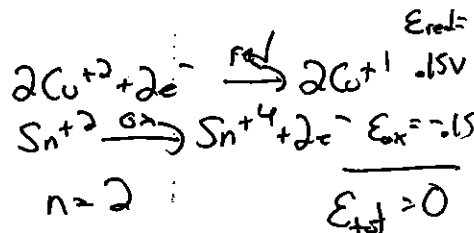 ε_red =
2Cu^+2 + 2e^- red→ 2Cu^+1 .15V
Sn^+2 ox→ Sn^+4 + 2e^- ε_ox = -.15
n = 2 ε_tot = 0